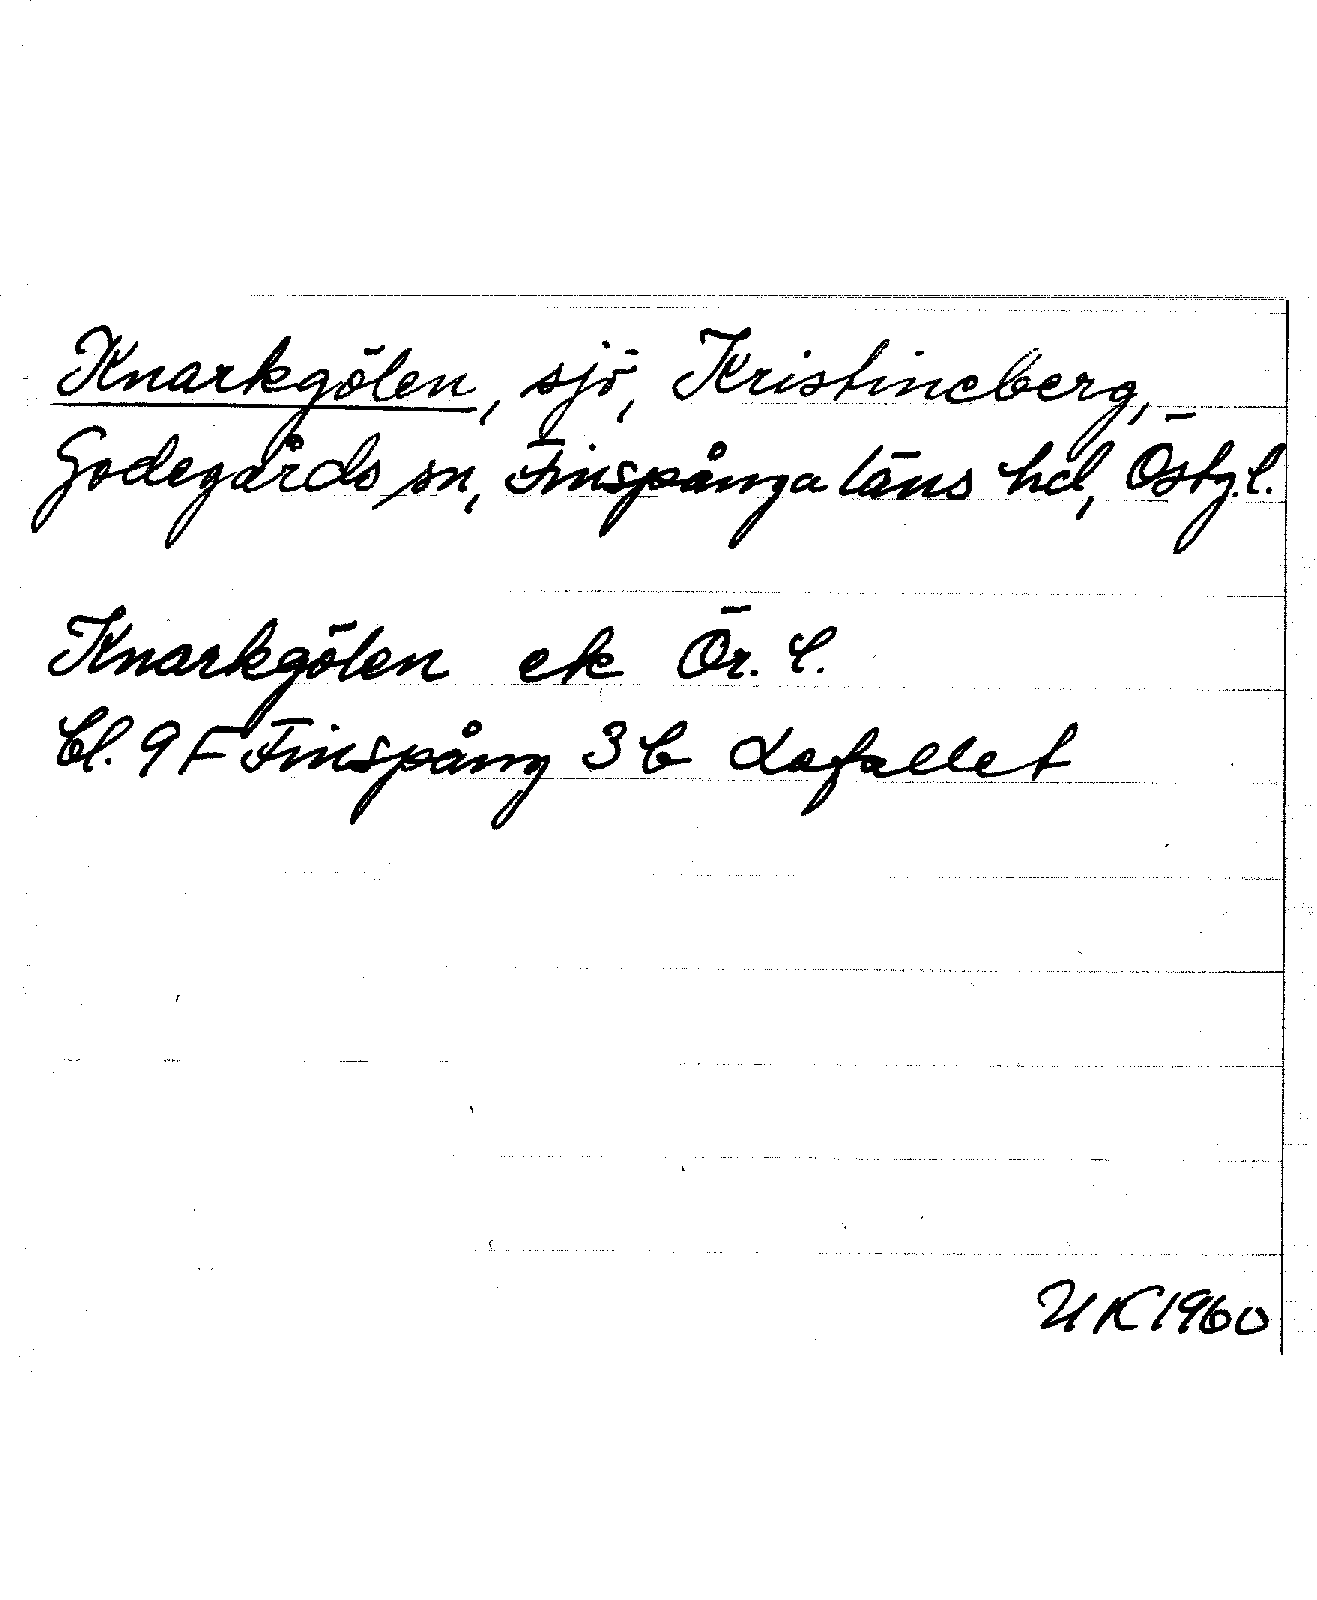 Knarkgölen, sjö, Kristineberg,
Godegårds sn, Finspånga läns hd, Östg.l.
Knarkgölen ek Ör. l.
bl. 9 F Finspång 3 b Lafallet
UK 1960